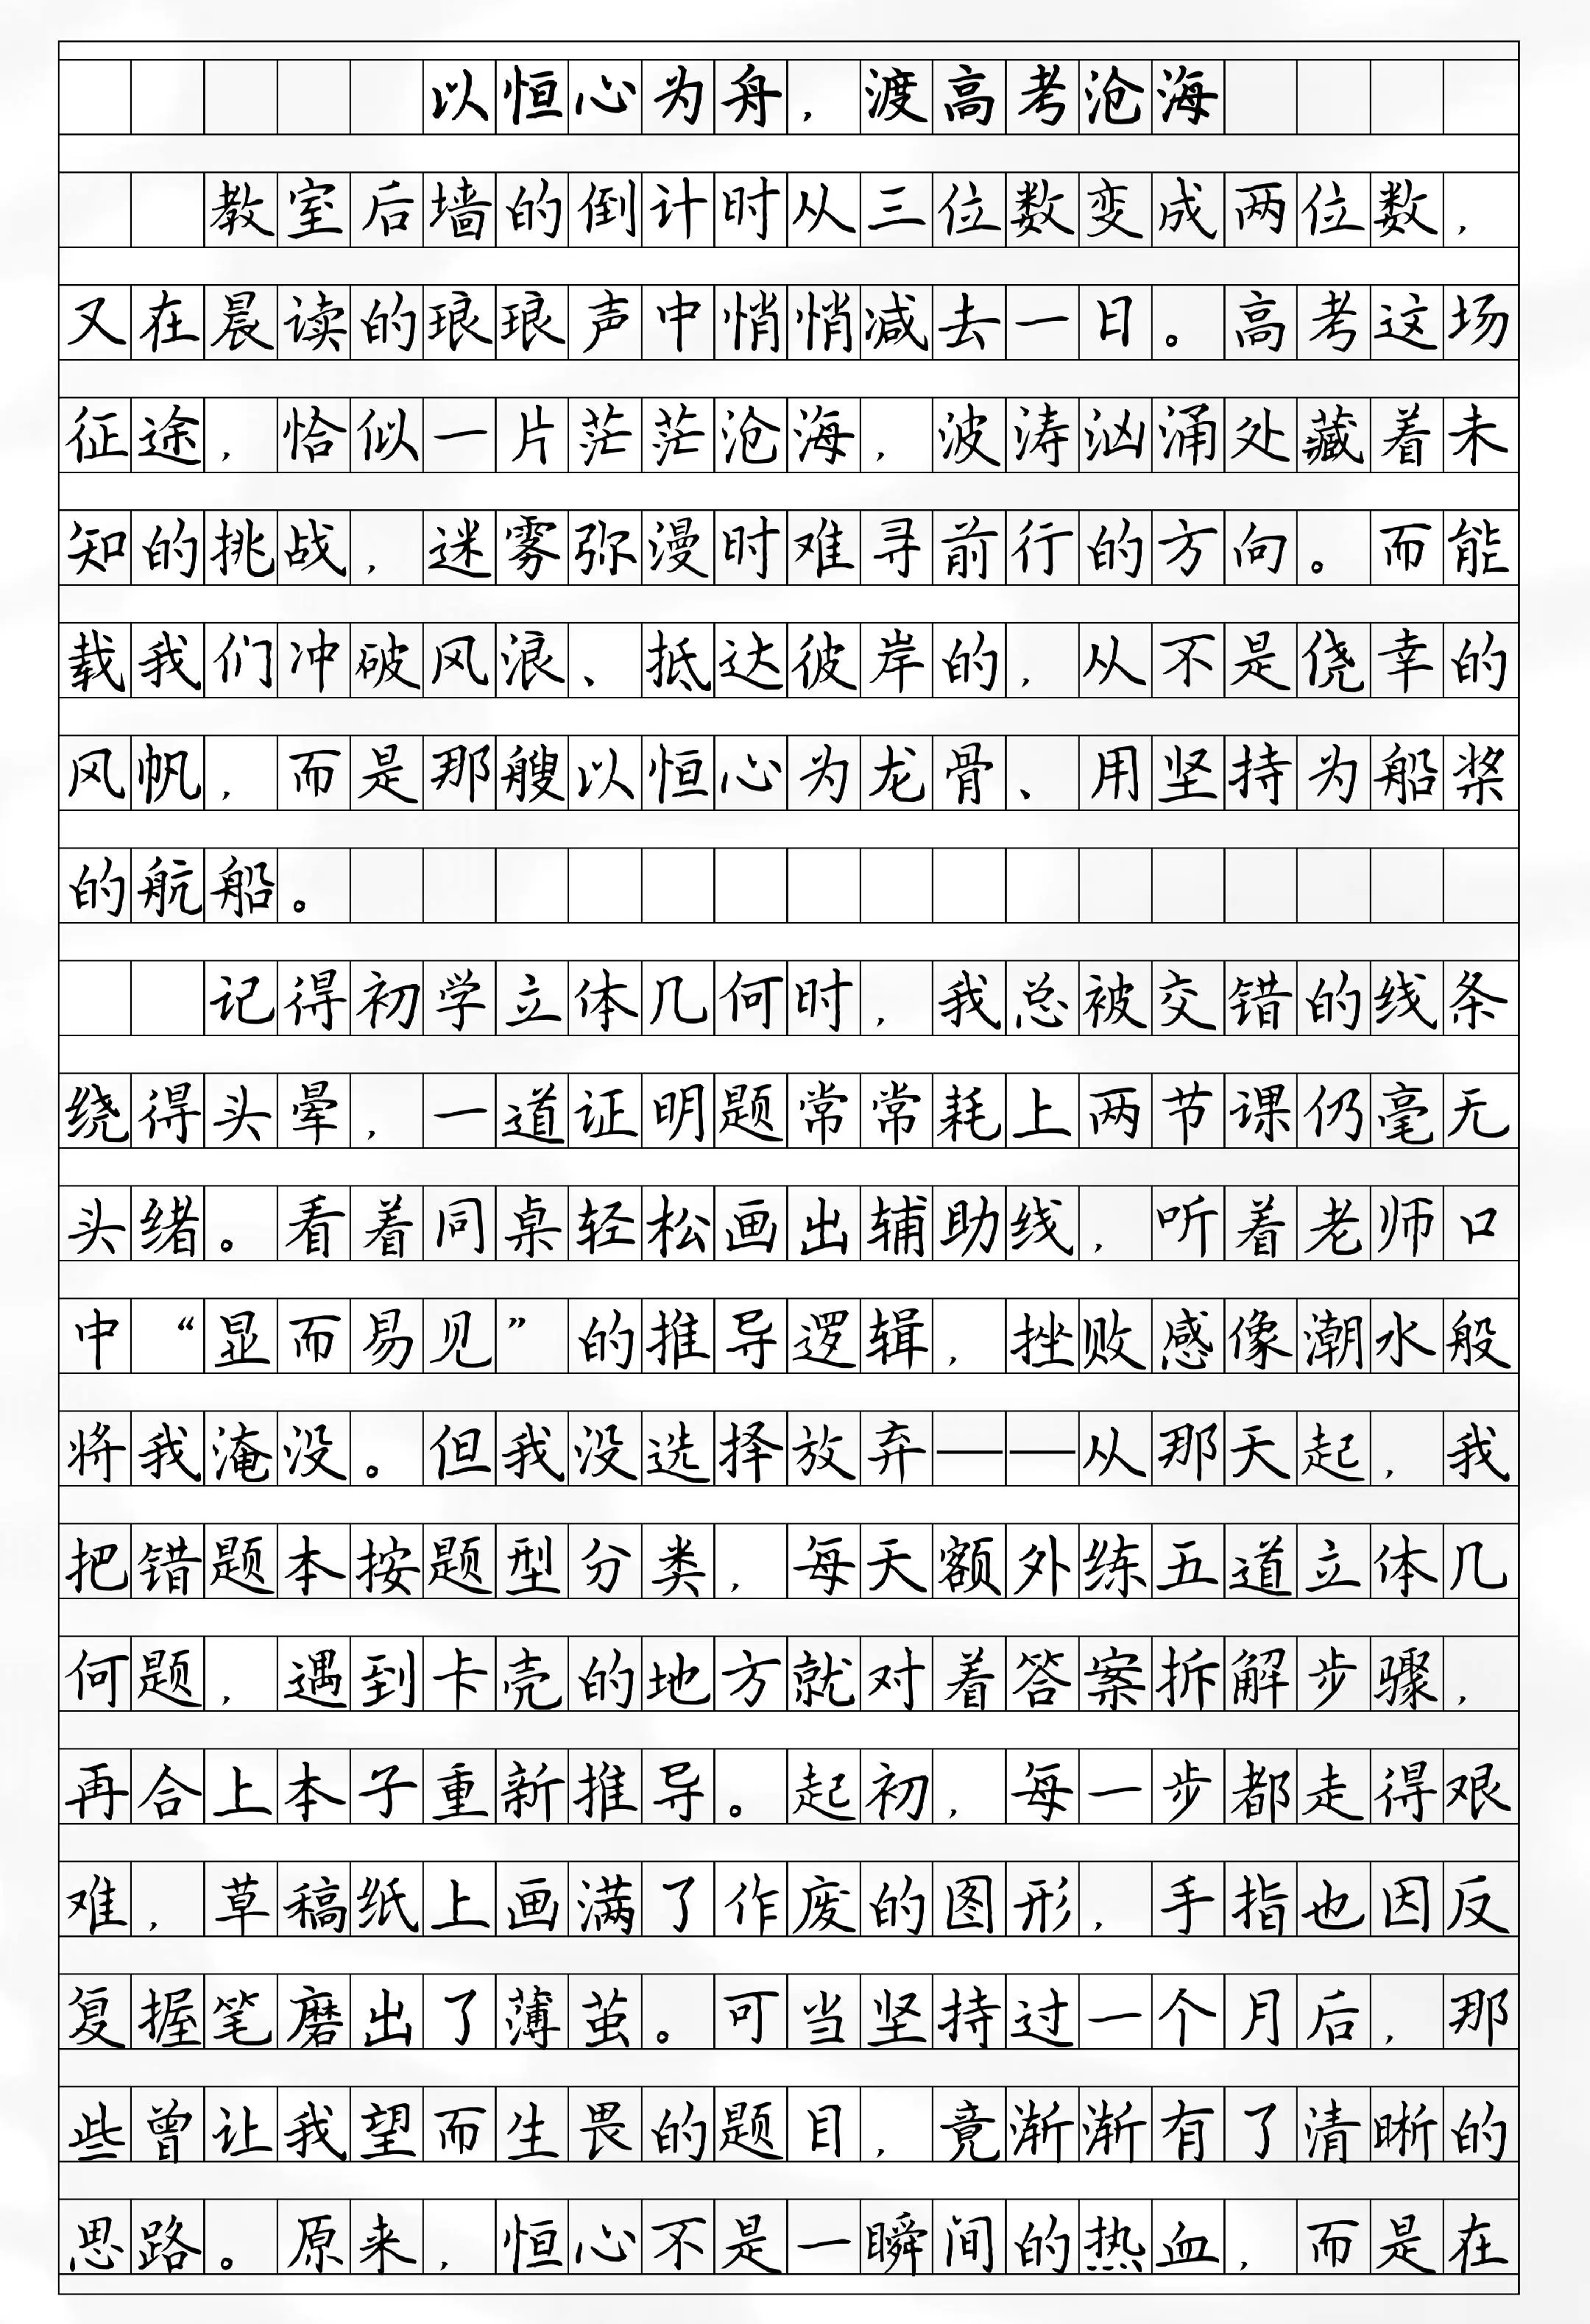 以恒心为舟，渡高考沧海
教室后墙的倒计时从三位数变成两位数，
又在晨读的琅琅声中悄悄减去一日。高考这场
征途，恰似一片茫茫沧海，波涛汹涌处藏着未
知的挑战，迷雾弥漫时难寻前行的方向。而能
载我们冲破风浪、抵达彼岸的，从不是侥幸的
风帆，而是那艘以恒心为龙骨、用坚持为船桨
的航船。
记得初学立体几何时，我总被交错的线条
绕得头晕，一道证明题常常耗上两节课仍毫无
头绪。看着同桌轻松画出辅助线，听着老师口
中“显而易见”的推导逻辑，挫败感像潮水般
将我淹没。但我没选择放弃——从那天起，我
把错题本按题型分类，每天额外练五道立体几
何题，遇到卡壳的地方就对着答案拆解步骤，
再合上本子重新推导。起初，每一步都走得艰
难，草稿纸上画满了作废的图形，手指也因反
复握笔磨出了薄茧。可当坚持过一个月后，那
些曾让我望而生畏的题目，竟渐渐有了清晰的
思路。原来，恒心不是一瞬间的热血，而是在